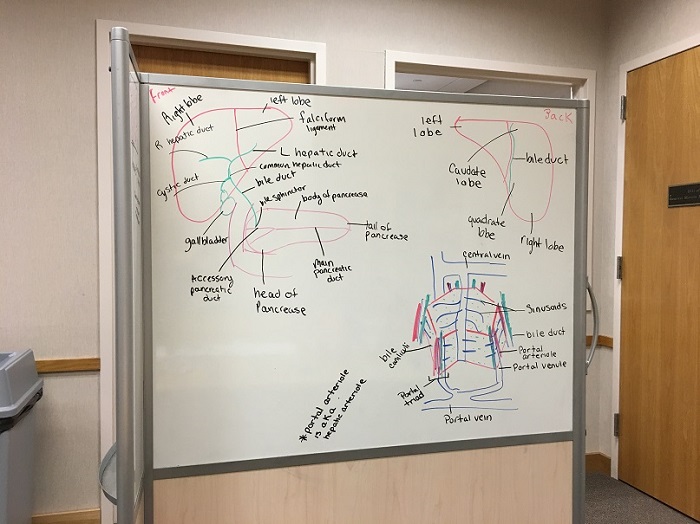 Front
Right lobe
left lobe
R hepatic duct
falciform
ligament
L hepatic duct
common hepatic duct
cystic duct
bile duct
bile sphincter
body of pancreas
gallbladder
tail of
Pancreas
Accessory
pancreatic
duct
main
pancreatic
duct
head of
Pancreas
Back
left
lobe
Caudate
lobe
bile duct
quadrate
lobe
right lobe
central vein
sinusoids
bile duct
bile
canliculi
Portal
arteriole
Portal venule
Portal
triad
Portal vein
*portal arteriole
is aka
hepatic arteriole